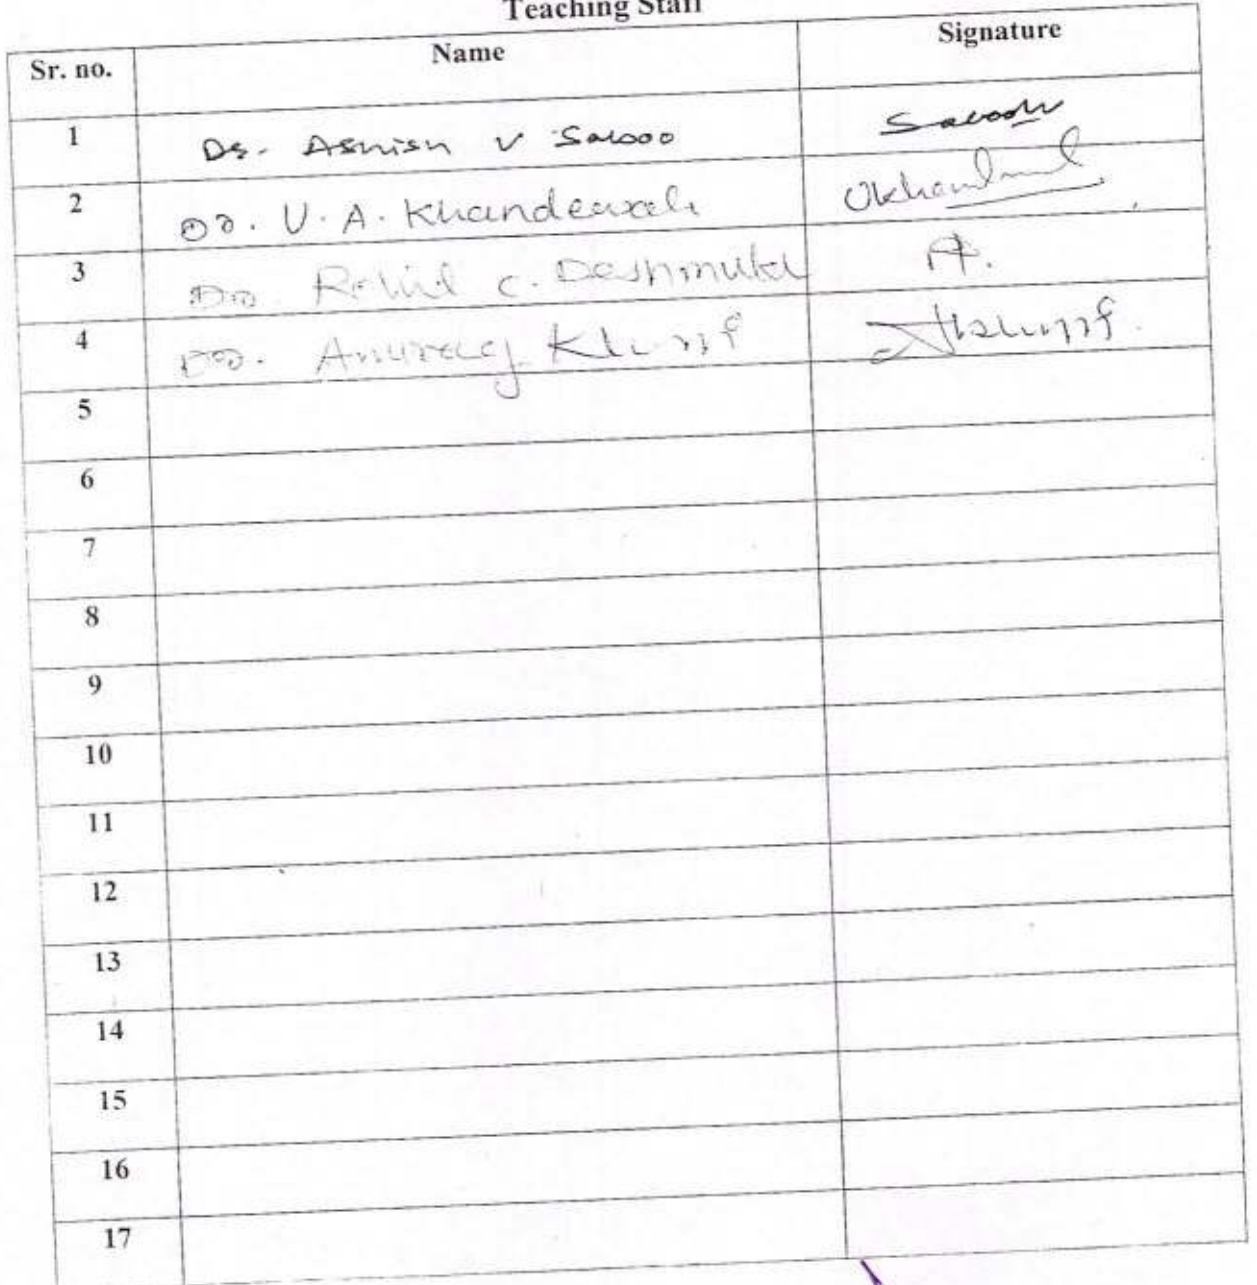 Teaching Staff
Sr. no. Name Signature
1 Dr. Ashish V Sarode Sarode
2 Dr. U. A. Khandewale
3 Dr. Rahul C. Deshmukh
4 Dr. Anurag
5
6
7
8
9
10
11
12
13
14
15
16
17